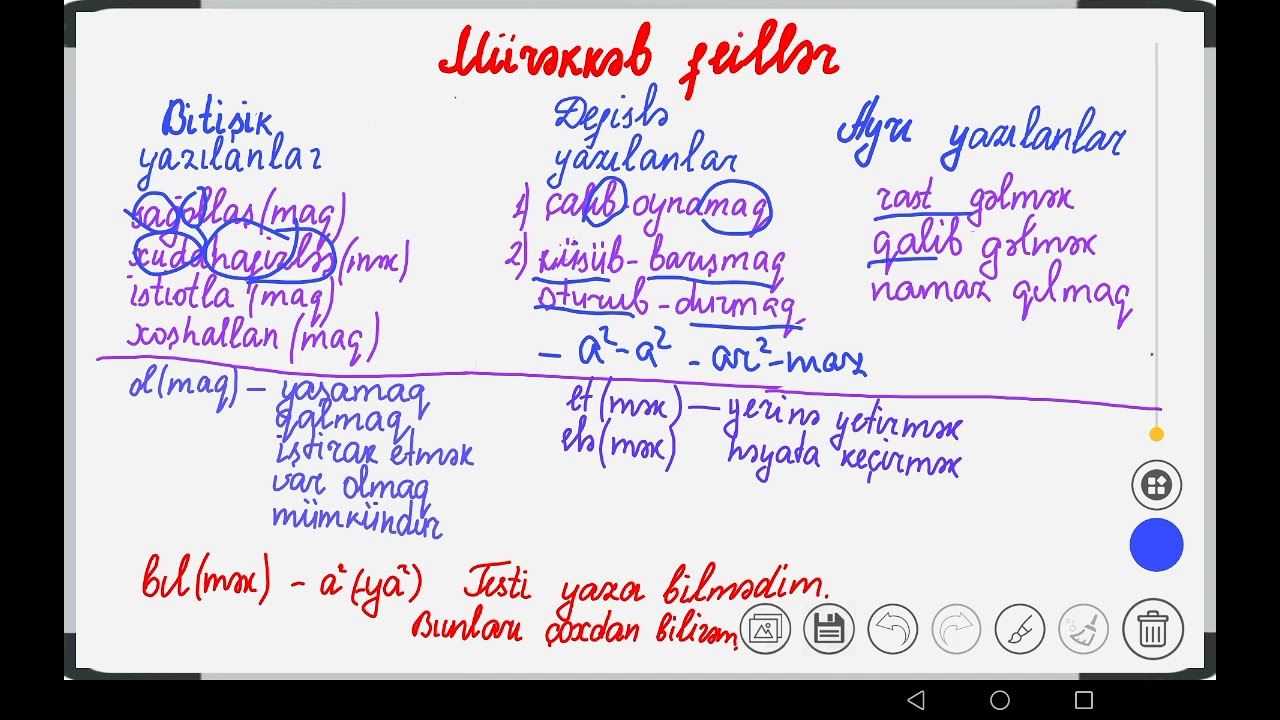 Mürəkkəb feillər
Bitişik
yazılanlar
sağollaş(maq)
xudahafizləş(mək)
istiotla (maq)
xoşhallan (maq)
Defislə
yazılanlar
1) çalıb-oynamaq
2) küsüb-barışmaq
oturub-durmaq
- a²-a² - ar²-maz
Ayrı yazılanlar
rast gəlmək
qalib gəlmək
namaz qılmaq
ol(maq) - yaşamaq
qalmaq
iştirak etmək
var olmaq
mümkündür
et(mək) - yerinə yetirmək
elə(mək) həyata keçirmək
bil(mək) - a²(-ya²) Testi yaza bilmədim.
Bunları çoxdan bilirəm